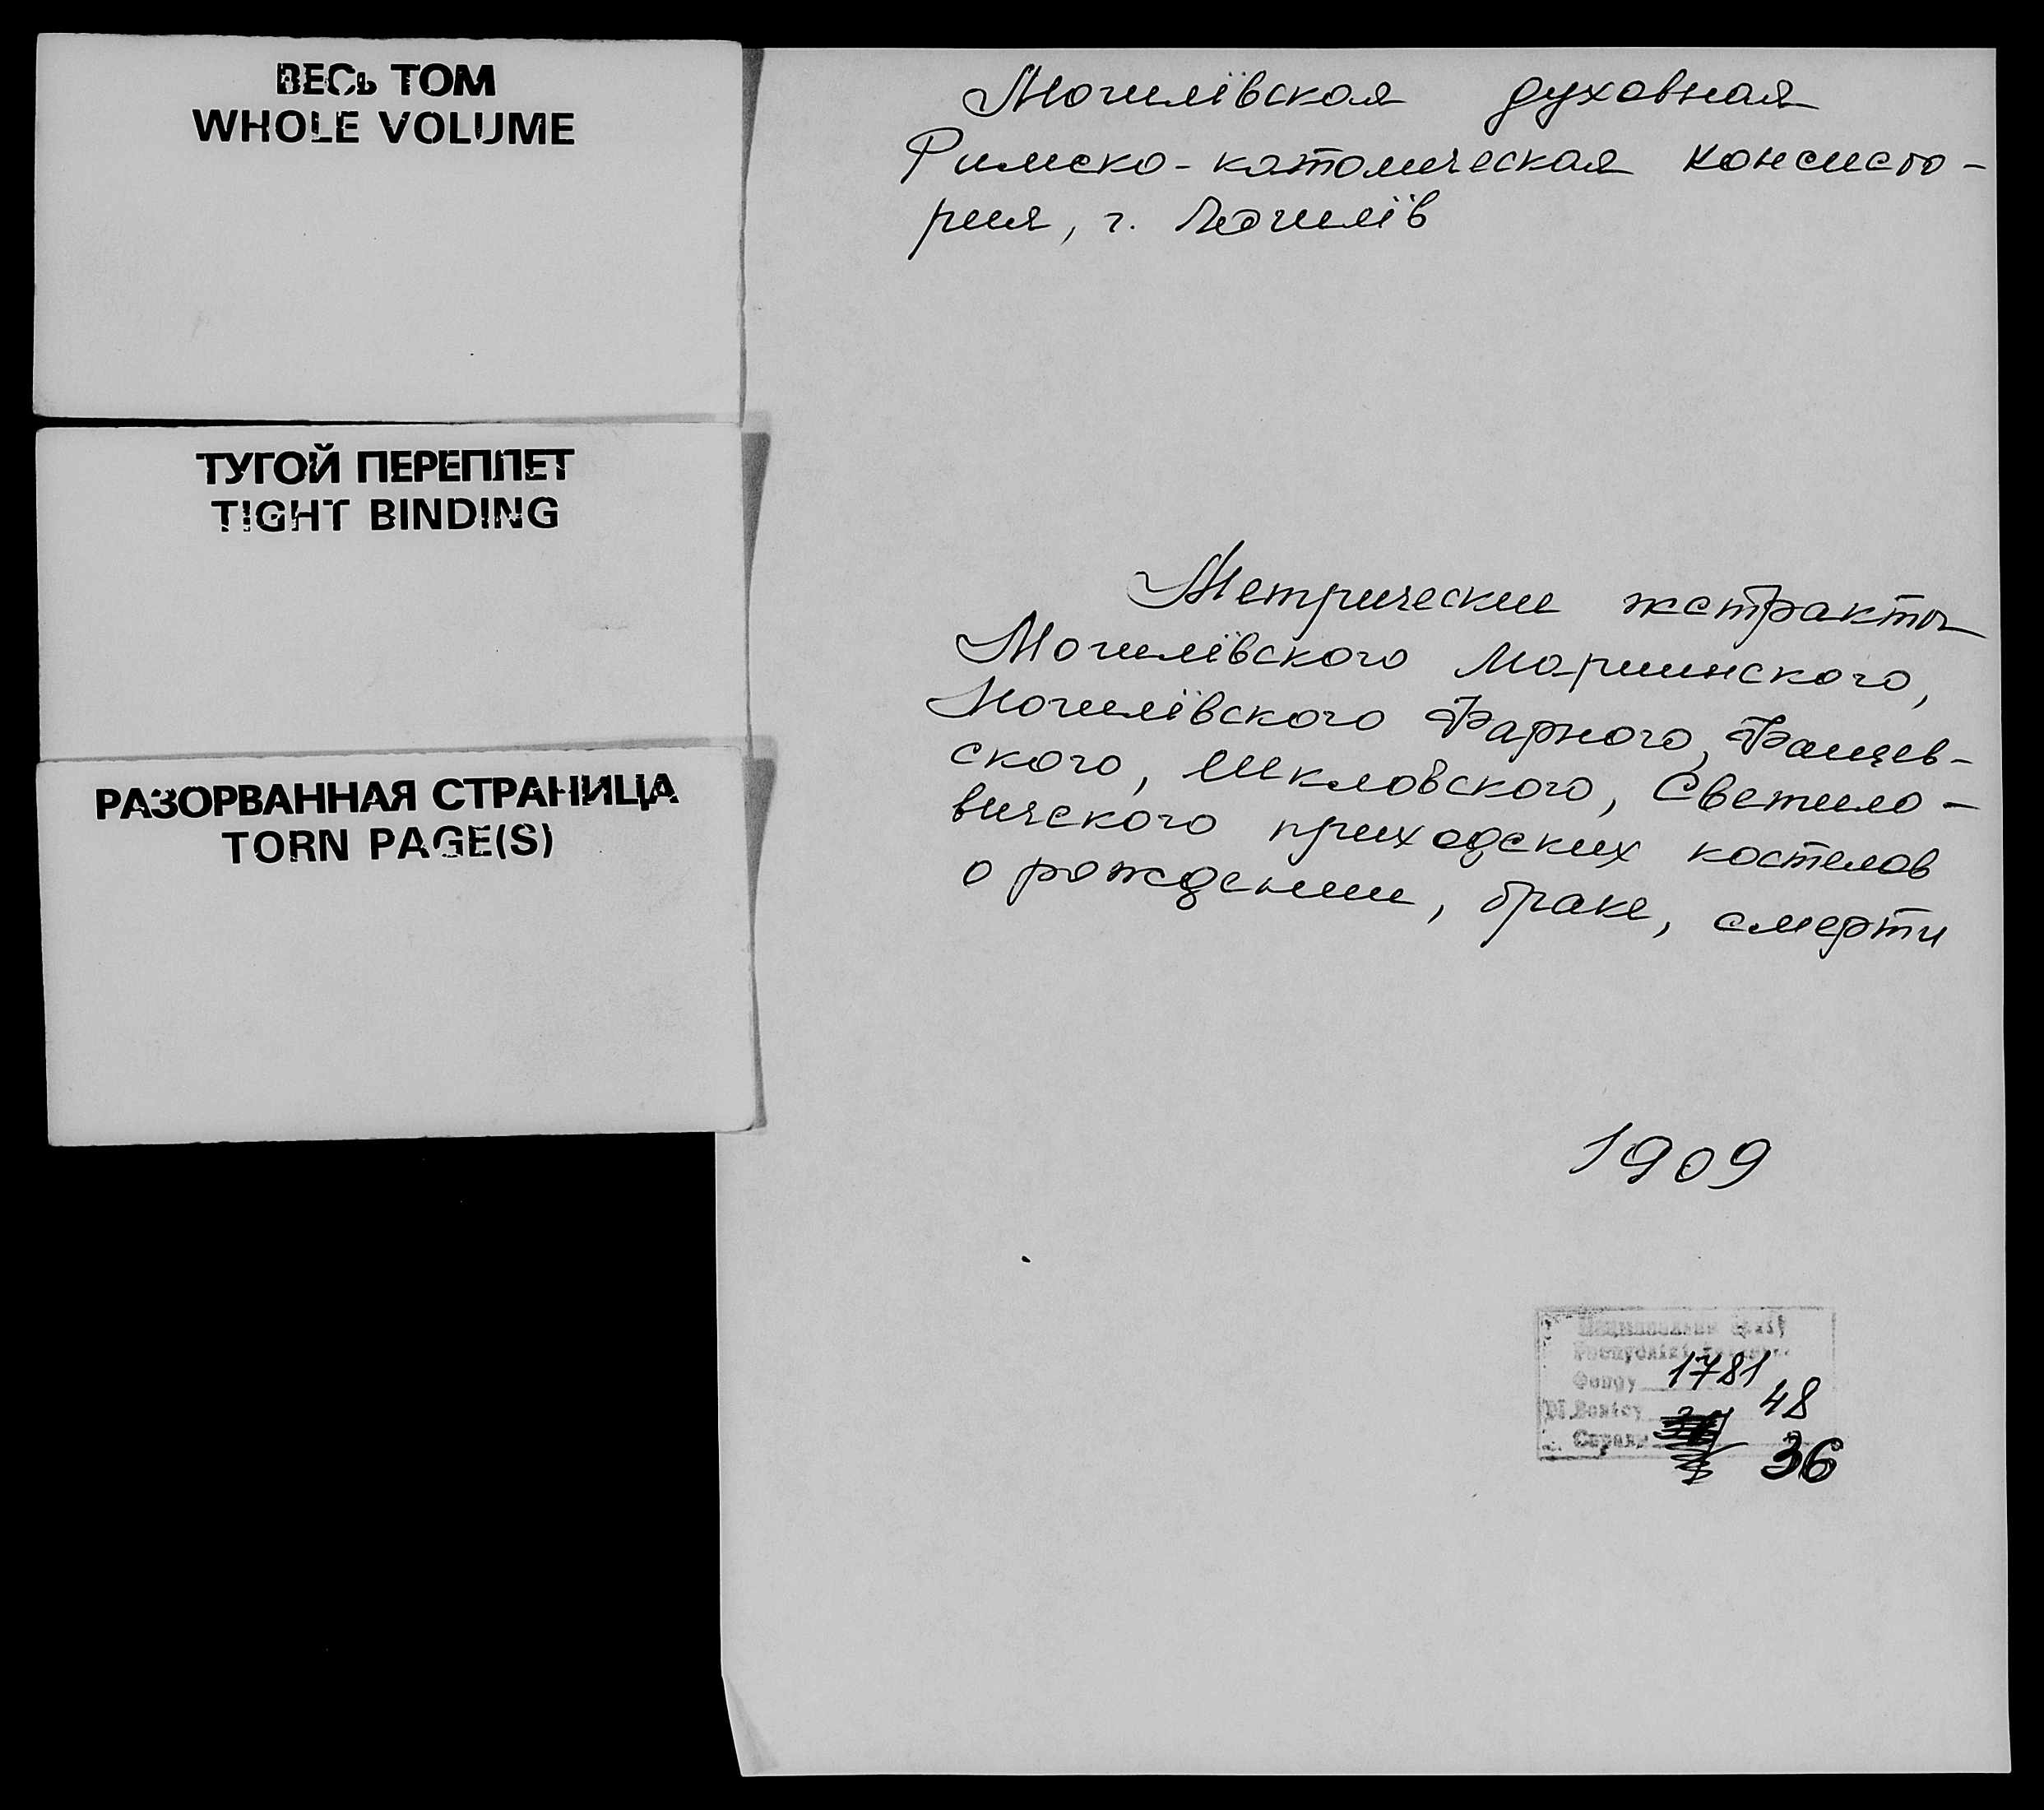 ВЕСЬ ТОМ
WHOLE VOLUME
ТУГОЙ ПЕРЕПЛЕТ
TIGHT BINDING
РАЗОРВАННАЯ СТРАНИЦА
TORN PAGE(S)
Могилёвская духовная
Римско-католическая консисто-
рия, г. Могилёв
Метрические экстракты
Могилёвского Мариинского,
Могилёвского Фарного, Фащев-
ского, Шкловского, Светило-
вичского приходских костелов
о рождении, браке, смерти
1909
Фонду 1781
48
Справа 36